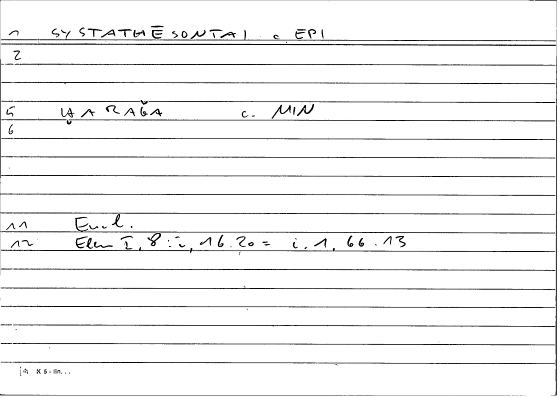 1 SYSTATHĒSONTAI c. EPI
2
5 ḪARAǦA c. MIN
6
11 Eucl.
12 Elem I, 8 : i, 16.20 = i. 1, 66.13